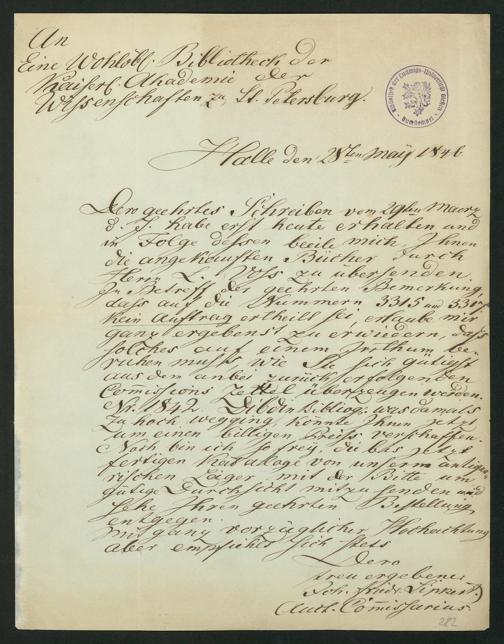 An
Eine Wohllöbl. Bibliotheck der
Kaiserl. Akademie der
Wissenschaften zu St. Petersburg.
Halle den 28ten Maÿ 1846
Dero geehrtes Schreiben vom 29ten Maerz
d. J. habe erst heute erhalten und
in Folge dessen beeile mich Ihnen
die angekauften Bücher durch
Herrn L. Voss zu übersenden.
In Betreff der geehrten Bemerkung,
dass auf die Nummern 3315 und
kein Auftrag ertheilt sei, erlaube mir
ganz ergebenst zu erwiedern, dass
solches auf einem Irrthum be-
ruhen muss wie Sie sich gütigst
aus dem anbei zurück erfolgenden
Commissions Zettel überzeugen werden.
Nr. 1842 Dibdin Bibliog. was damals
zu hoch wegging, könnte Ihnen jetzt
um einen billigen Preiss verschaffen.
Noch bin ich so frey, die bis jetzt
fertigen Kataloge von unserm antiqua-
rischen Lager mit der Bitte um
gütige Durchsicht mitzusenden und
sehe Ihren geehrten Bestellung
entgegen.
Mit ganz vorzüglicher Hochachtung
aber empfiehlt sich stets
Dero
treu ergebener
Joh. Fridr. Lippert.
Auct. Commissarius.
282